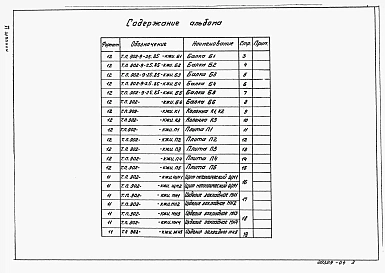 Содержание альбома
Формат Обозначение Наименование Стр. Прим.
12 Т.П. 902-9-25.85 -КЖИ.Б1 Балка Б1 3
12 Т.П. 902-9-25.85 -КЖИ.Б2 Балка Б2 4
12 Т.П. 902-9-25.85 -КЖИ.Б3 Балка Б3 5
12 Т.П. 902-9-25.85 -КЖИ.Б4 Балка Б4 6
12 Т.П. 902-9-25.85 -КЖИ.Б5 Балка Б5 7
12 Т.П. 902- -КЖИ.Б6 Балка Б6 8
12 Т.П. 902- -КЖИ.К1 Колонна К1, К2 9
12 Т.П. 902- -КЖИ.К3 Колонна К3 10
12 Т.П. 902- -КЖИ.П1 Плита П1 11
12 Т.П. 902- -КЖИ.П2 Плита П2 12
12 Т.П. 902- -КЖИ.П3 Плита П3 13
12 Т.П. 902- -КЖИ.П4 Плита П4 14
12 Т.П. 902- -КЖИ.П5 Плита П5 15
11 Т.П. 902- Щит металлический 16
11 Т.П. 902- Щит металлический
11 Т.П. 902- -КЖИ.МН1 Изделие закладное МН1 17
11 Т.П. 902- -КЖИ.МН2 Изделие закладное МН2
11 Т.П. 902- -КЖИ.МН3 Изделие закладное МН3 18
11 Т.П. 902- -КЖИ.МН4 Изделие закладное МН4
11 Т.П. 902- -КЖИ.МН5 Изделие закладное МН5 19